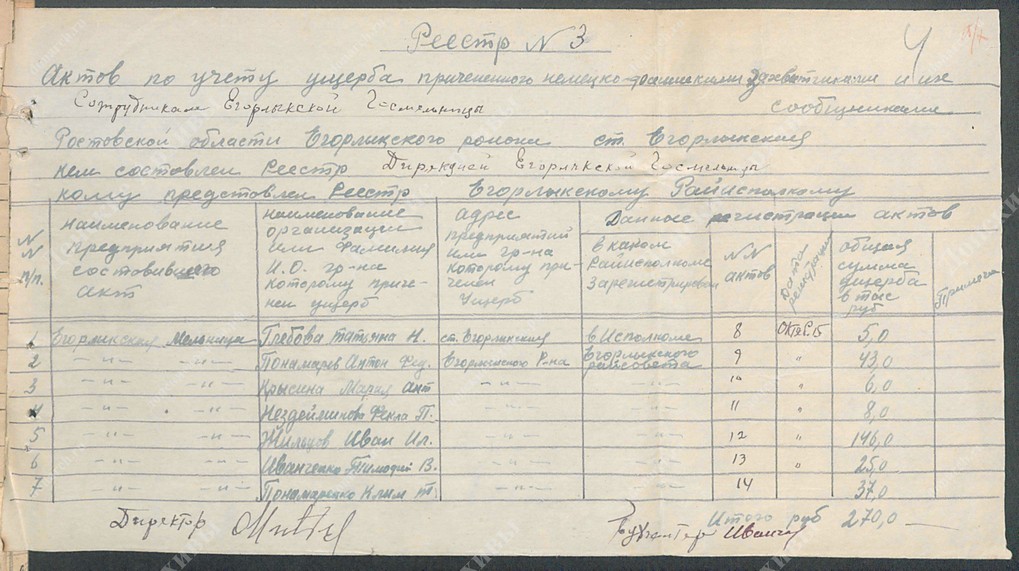 Реестр N 3
4
Актов по учету ущерба причененного немецко-фашискими захватчиками и их
Сотрудникам Егорлыкской Госмельницы сообщниками
Ростовской области Егорлыкского района ст. Егорлыкская
кем составлен Реестр Дирекцией Егорлыкской Госмельницы
кому предстовлен Реестр Егорлыкскому Райисполкому
N N п/п.
наименование предприятия состовившего акт
наименование организации или Фамилия И.О. гр-на которому приченен ущерб
адрес предприятий или гр-на которому приченен ущерб
Данные регистрации актов
в каком Райисполкоме зарегистрирован
N N актов
Дата
общая сумма ущерба в тыс руб
Примеч.
1 Егорлыкская Мельница Глебова Татьяна Н. ст. Егорлыкская в Исполкоме 8 Октяб. 15 5,0
2 -"- -"- Понамарев Антон Фед. Егорлыкского Р-на Егорлыкского райсовета 9 " 43,0
3 -"- -"- Крысина Мария Ант -"- -"- 10 " 6,0
4 -"- -"- Нездейминова Фекла П. -"- -"- 11 " 8,0
5 -"- -"- Жильцов Иван Ил. -"- -"- 12 " 146,0
6 -"- -"- Иванченко Тимофий В. -"- -"- 13 " 25,0
7 -"- -"- Понамаренко Клим -"- -"- 14 37,0
Итого руб 270,0
Директор
Бухгалтер